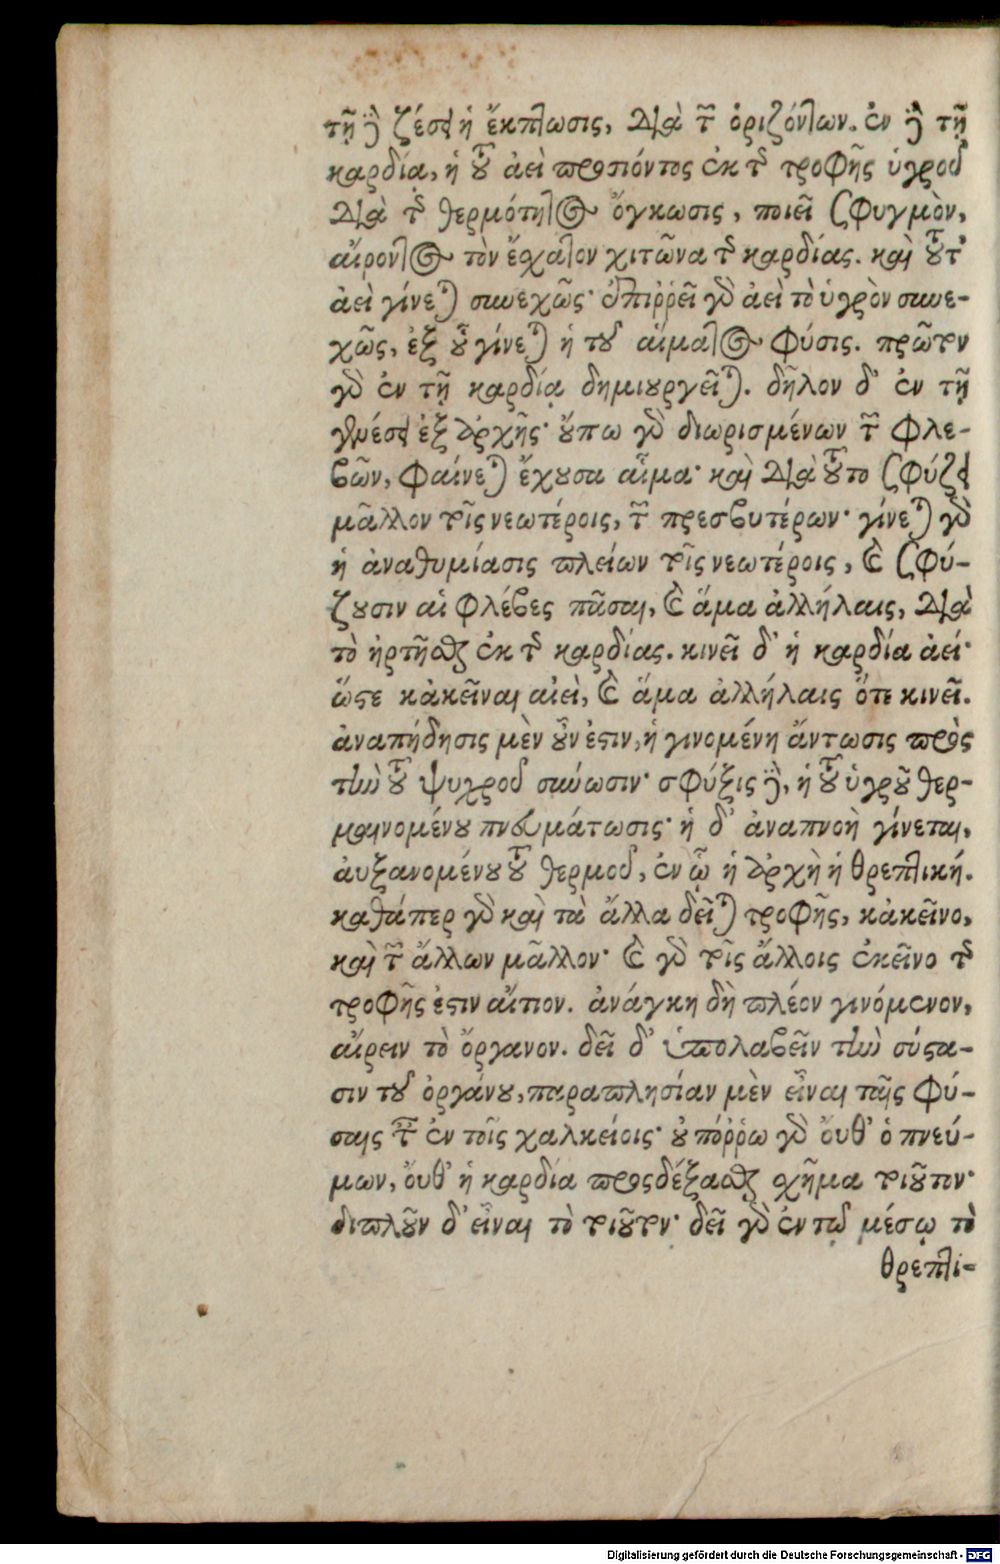 τῇ δὲ ζέσει ἡ ἔκπτωσις, διὰ τῶν ὁριζόντων. ἐν δὲ τῇ
καρδίᾳ, ἡ τοῦ ἀεὶ προσιόντος ἐκ τῆς τροφῆς ὑγροῦ
διὰ τῆς θερμότητος ὄγκωσις, ποιεῖ σφυγμὸν,
αἴροντος τὸν ἔσχατον χιτῶνα τῆς καρδίας. καὶ τοῦτ'
ἀεὶ γίνεται συνεχῶς· ἐπιῤῥεῖ γὰρ ἀεὶ τὸ ὑγρὸν συνε-
χῶς, ἐξ οὗ γίνεται ἡ τοῦ αἵματος φύσις. πρῶτον
γὰρ ἐν τῇ καρδίᾳ δημιουργεῖται. δῆλον δ' ἐν τῇ
γενέσει ἐξ ἀρχῆς· οὔπω γὰρ διωρισμένων τῶν φλε-
βῶν, φαίνεται ἔχουσα αἷμα· καὶ διὰ τοῦτο σφύζει
μᾶλλον τοῖς νεωτέροις, τῶν πρεσβυτέρων· γίνεται γὰρ
ἡ ἀναθυμίασις πλείων τοῖς νεωτέροις, καὶ σφύ-
ζουσιν αἱ φλέβες πᾶσαι, καὶ ἅμα ἀλλήλαις, διὰ
τὸ ἠρτῆσθαι ἐκ τῆς καρδίας. κινεῖ δ' ἡ καρδία ἀεί·
ὥστε κἀκεῖναι αἰεὶ, καὶ ἅμα ἀλλήλαις ὅτε κινεῖ.
ἀναπήδησις μὲν οὖν ἐστιν, ἡ γινομένη ἄντωσις πρὸς
τὴν τοῦ ψυχροῦ σύνωσιν· σφύξις δὲ, ἡ τοῦ ὑγροῦ θερ-
μαινομένου πνευμάτωσις· ἡ δ' ἀναπνοὴ γίνεται,
αὐξανομένου τοῦ θερμοῦ, ἐν ᾧ ἡ ἀρχὴ ἡ θρεπτική.
καθάπερ γὰρ καὶ τὰ ἄλλα δεῖται τροφῆς, κἀκεῖνο,
καὶ τῶν ἄλλων μᾶλλον· καὶ γὰρ τοῖς ἄλλοις ἐκεῖνο τῆς
τροφῆς ἐστιν αἴτιον. ἀνάγκη δὴ πλέον γινόμενον,
αἴρειν τὸ ὄργανον. δεῖ δ' ὑπολαβεῖν τὴν σύστα-
σιν τοῦ ὀργάνου, παραπλησίαν μὲν εἶναι ταῖς φύ-
σαις τῶν ἐν τοῖς χαλκείοις· οὐ πόῤῥω γὰρ οὔθ' ὁ πνεύ-
μων, οὔθ' ἡ καρδία προσδέξασθαι σχῆμα τοιοῦτον·
διπλοῦν δ' εἶναι τὸ τοιοῦτον· δεῖ γὰρ ἐν τῷ μέσῳ τὸ
θρεπτι-
Digitalisierung gefördert durch die Deutsche Forschungsgemeinschaft - DFG